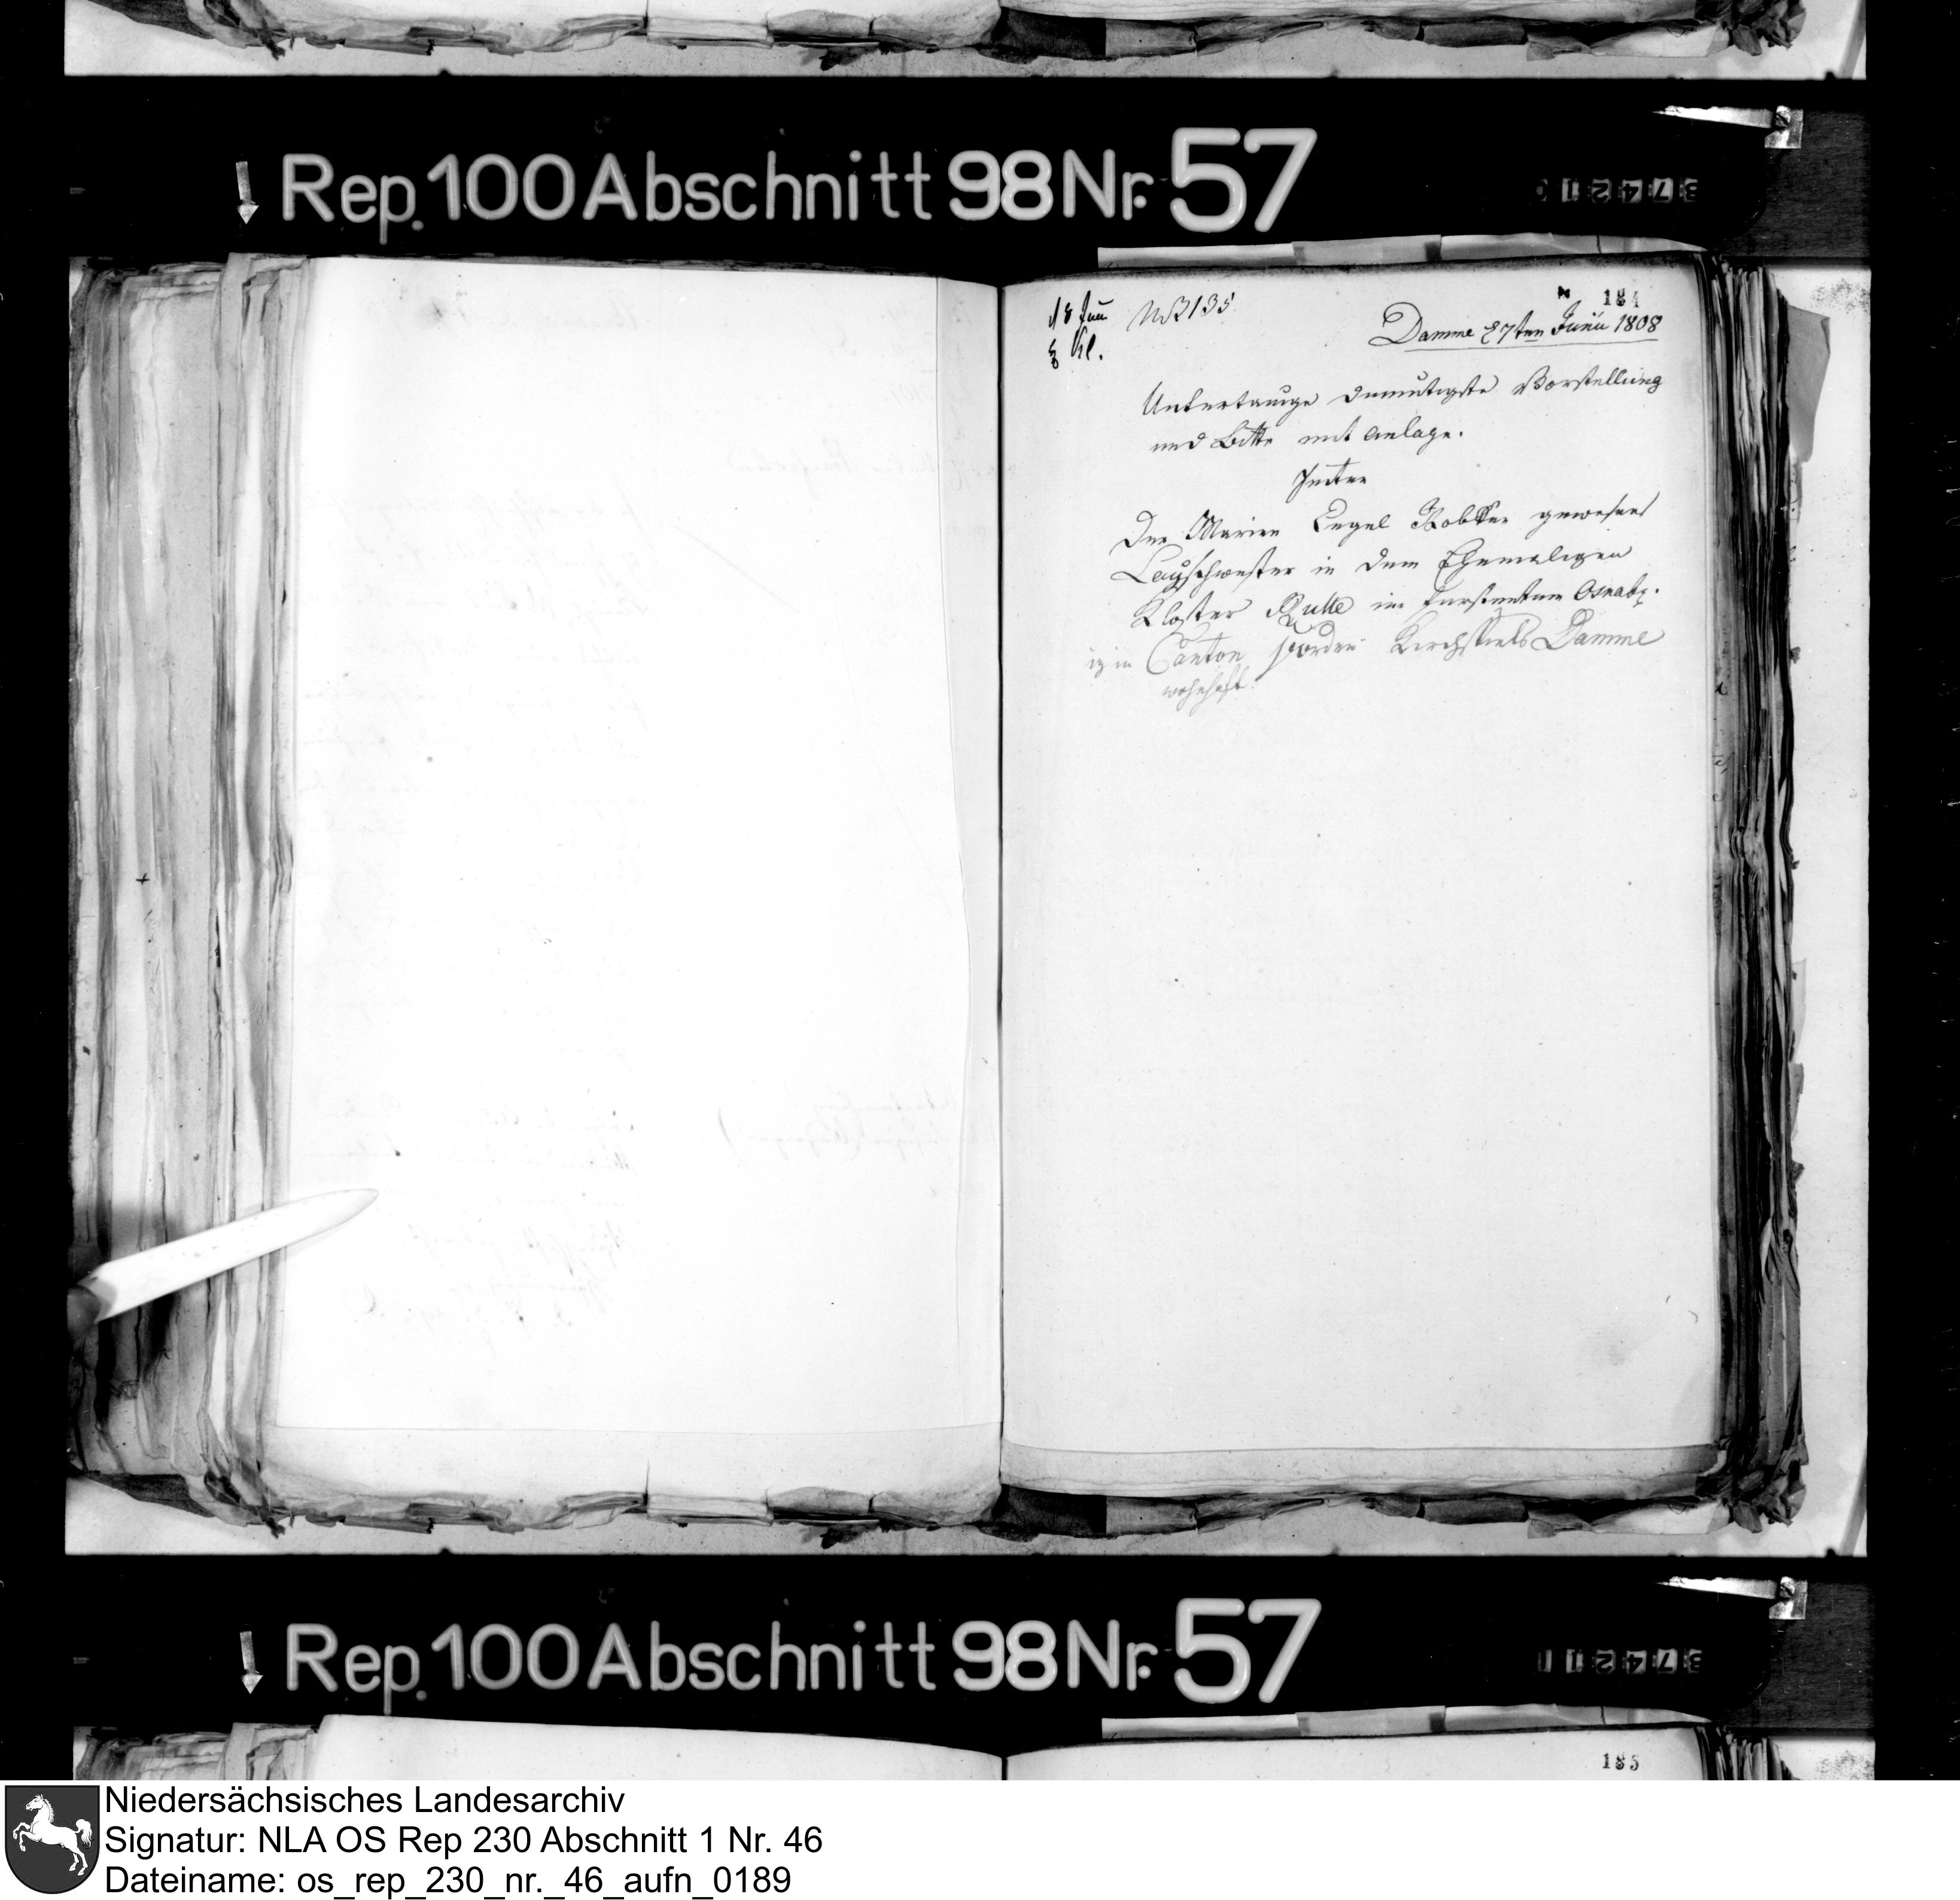 Rep. 100 Abschnitt 98 Nr. 57
37421
184
18 Jun
N 2135
Kl.
Damme 27ten Junii 1808
Untertänige demutigste Vorstellung
und Bitte mit anlage.
Der Marien Engel gewesene
Layschwester in dem Ehemaligen
Kloster Rulle im furstentum Osnabr.
in Canton Vörden Kirchspiels Damme
wohnhaft
Rep. 100 Abschnitt 98 Nr. 57
37421
185
Niedersächsisches Landesarchiv
Signatur: NLA OS Rep 230 Abschnitt 1 Nr. 46
Dateiname: os_rep_230_nr._46_aufn_0189